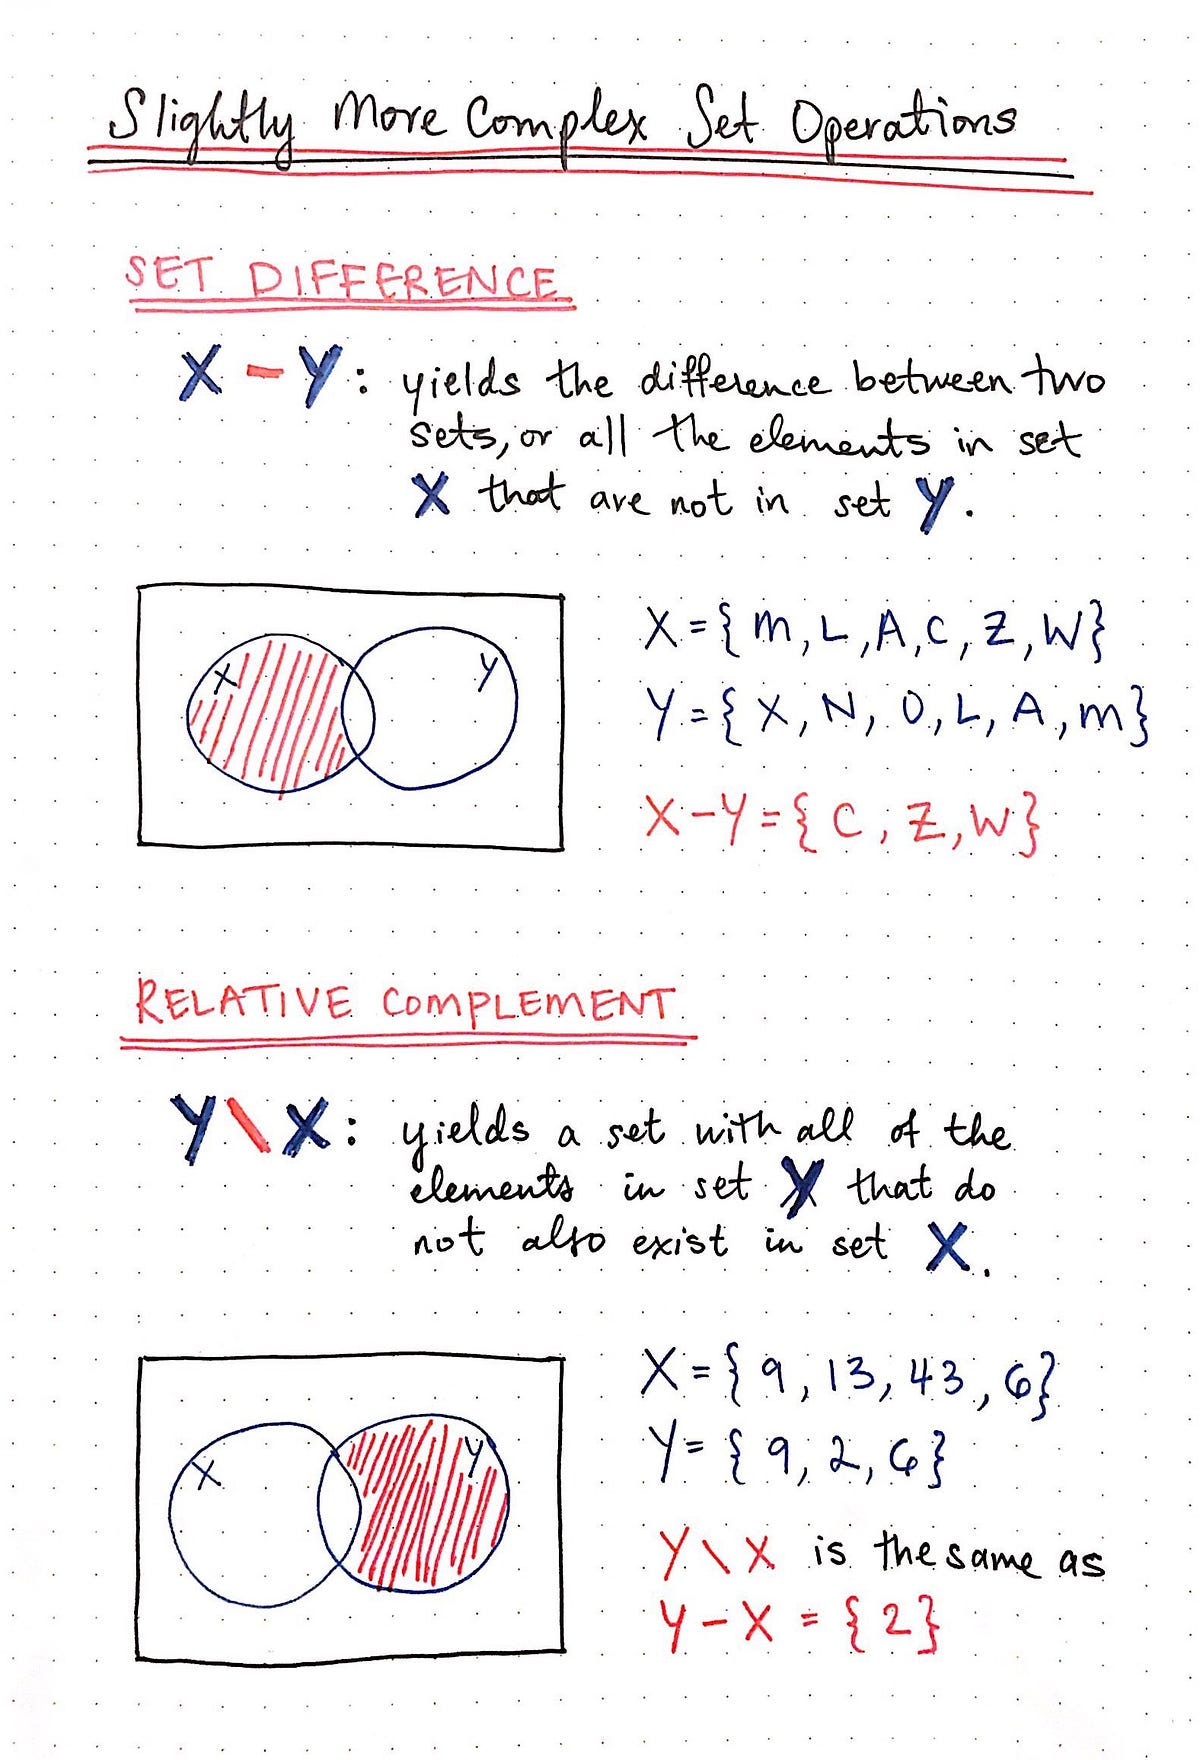 Slightly More Complex Set Operations
SET DIFFERENCE
X - Y: yields the difference between two
sets, or all the elements in set
X that are not in set Y.
X
Y
X = { M, L, A, C, Z, W}
Y = { X, N, O, L, A, M}
X - Y = { C, Z, W}
RELATIVE COMPLEMENT
Y \ X: yields a set with all of the
elements in set Y that do
not also exist in set X.
X
Y
X = { 9, 13, 43, 6}
Y = { 9, 2, 6}
Y \ X is the same as
Y - X = { 2}